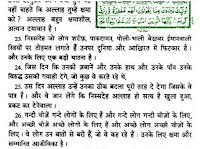 नहीं चाहते कि अल्लाह तुम्हें क्षमा
करे? अल्लाह बहुत क्षमाशील,
अत्यन्त दयावान है।
23. निस्संदेह जो लोग शरीफ़, पाकदामन, भोली-भाली बेख़बर ईमानवाली
स्त्रियों पर तोहमत लगाते हैं उनपर दुनिया और आख़िरत में फिटकार है।
और उनके लिए एक बड़ी यातना है।
24. जिस दिन कि उनकी ज़बानें और उनके हाथ और उनके पाँव उनके
विरुद्ध उसकी गवाही देंगे, जो कुछ वे करते रहे थे,
25. उस दिन अल्लाह उन्हें उनका ठीक बदला पूरी तरह दे देगा जिसके वे
पात्र हैं। और वे जान लेंगे कि निस्संदेह अल्लाह ही सत्य है खुला हुआ,
प्रकट कर देनेवाला।
26. गन्दी चीज़ें गन्दे लोगों के लिए हैं और गन्दे लोग गन्दी चीज़ों के लिए,
और अच्छी चीज़ें अच्छे लोगों के लिए हैं और अच्छे लोग अच्छी चीज़ों के
लिए। वे लोग उन बातों से बरी हैं, जो वे कह रहे हैं। उनके लिए क्षमा और
सम्मानित आजीविका है।